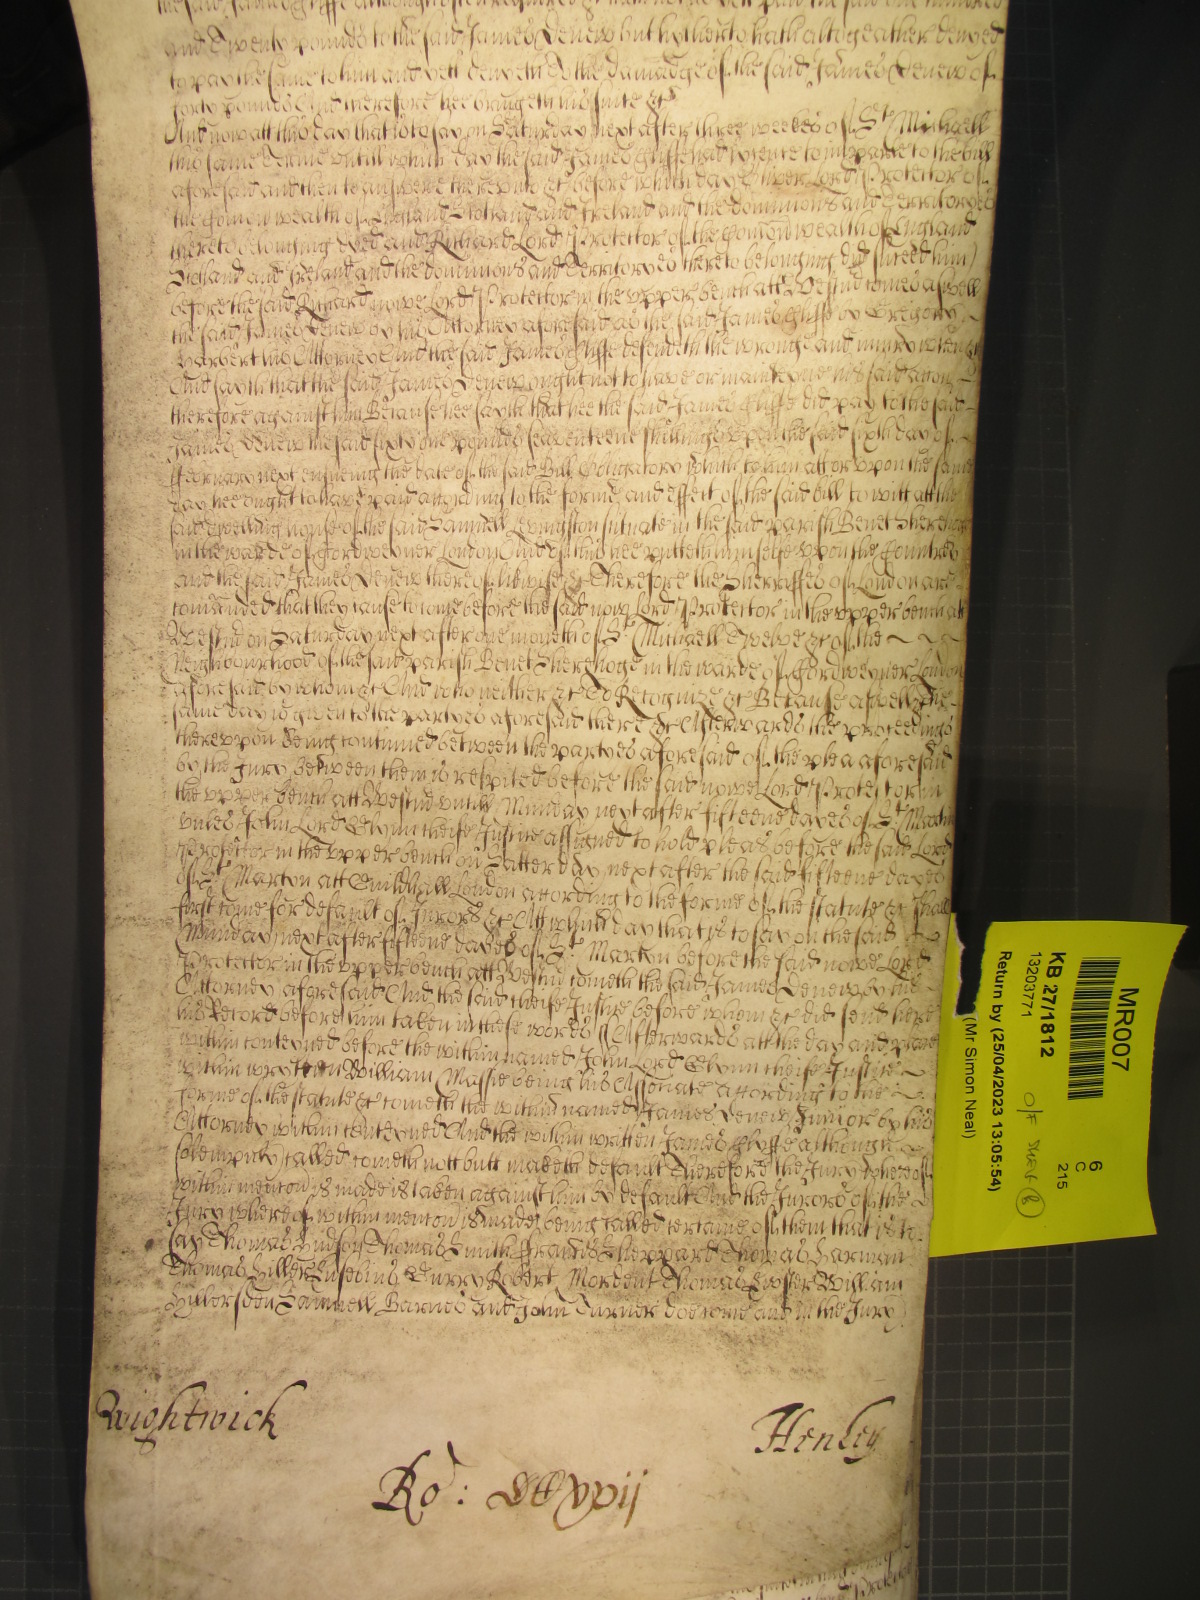 and Twenty pounds to the said James Renew but hitherto hath altogeather denyed
to pay the same to him and yett denyeth To the damadge of the said James Renew of
forty pounds And therefore hee bringeth his suite &c
And now att this day that is to say on Saturday next after three weekes of St Michaell
this same Terme untill which day the said James Cliffe had lycence to imparle to the bill
aforesaid and then to answere thereunto &c before which day Oliver Lord Protector of
the Comonwealth of England Scotland and Ireland and the dominions and Territoryes
thereto belonging dyed and Richard Lord Protector of the Comonwealth of England
Scotland and Ireland and the dominions and Territoryes thereto belonging did succeed him
before the said Richard nowe Lord Protector in the upper bench att Westmr comes aswell
the said James Renew by his Attorney aforesaid as the said James Cliffe by Gregory
Harbert his Attorney And the said James Cliffe defendeth the wronge and injury when &c
And sayth that the said James Renew ought not to have or mainteyne his said accon
therefore against him Because hee sayth that hee the said James Cliffe did pay to the said
James Renew the said sixty one pounds seaventeene shillings upon the said sixth day of
February next ensueing the date of the said Bill Obligatory which to him att or upon the same
day hee ought to have paid according to the forme and effect of the said bill to witt att the
said dwelling house of the said Samuell Levingston situate in the said parish Benet Sherehogge
in the warde of Cordweyner London And of this hee putteth himselfe upon the Countrey
and the said James Renew thereof likewise &c Therefore the Sherriffes of London are
comanded that they cause to come before the said now Lord Protector in the upper bench att
Westmr on Saturday next after one moneth of St Michaell Twelve &c of the
Neighbourhood of the said parish Benet Sherehoge in the warde of Cordweyner London
aforesaid by whom &c And who neither &c To Recognize &c Because aswell &c The
same day is given to the partyes aforesaid there &c Afterwards the proceedings
thereupon being continued between the partyes aforesaid of the plea aforesaid
by the Jury between them is respited before the said nowe Lord Protector in
the upper bench att Westmr untill Munday next after fifteene dayes of St Martin
unles John Lord Glynn cheife Justice assigned to hold pleas before the said Lord
Protector in the upper bench on Satterday next after the said fifteene dayes
of St Martyn att Guildhall London according to the forme of the statute &c shall
first come for default of Jurors &c Att which day that is to say on the said
Munday next after fifteene dayes of St Martyn before the said nowe Lord
Protector in the upper bench att Westmr cometh the said James Renew by his
Attorney aforesaid And the said cheife Justice before whom &c did send here
his Record before him taken in these words Afterwards att the day and place
within conteyned before the within named John Lord Glynn cheife Justice
within wrytten William Massie being his Associate according to the
forme of the statute &c cometh the within named James Renew Junior by his
Attorney within conteyned And the within written James Clyffe although
solempnly called cometh nott butt maketh default Therefore the Jury whereof
within mencon is made is taken against him by default And the Jurors of the
Jury whereof within mencon is made being called certaine of them that is to
say Thomas Hudson Thomas Smith Francis Sheppard Thomas Harman
Thomas Hiller Eusebius Curry Robert Mordent Thomas Lyster William
Hilbersden Samuell Barnes and John Turner doe come and in the Jury
Wightwick
Henley
Ro: CCxvij
MR007
6
C
215
KB 27/1812
13203771
Return by (25/04/2023 13:05:54)
(Mr Simon Neal)